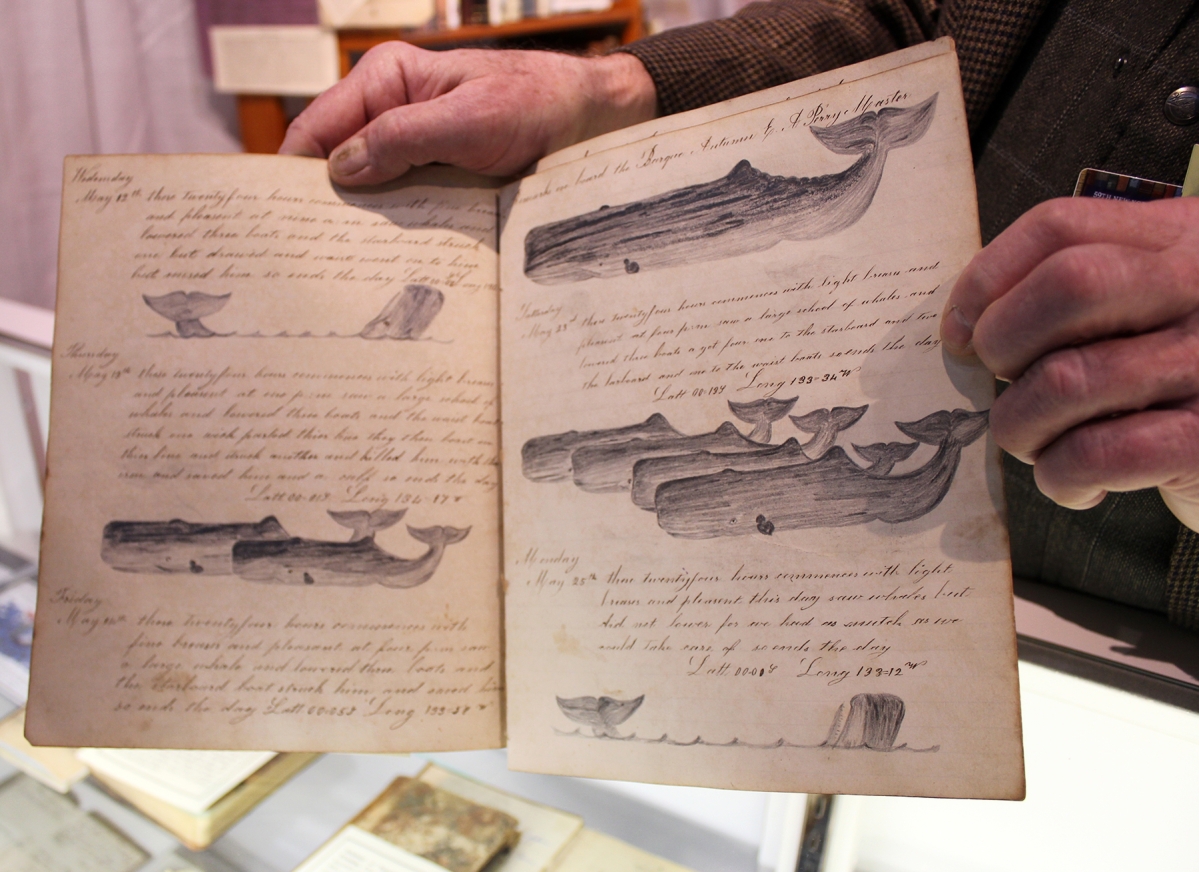 Wednesday
May 13th these twentyfour hours commences with fine
and pleasant at
lowered three boats and the starboard struck
one but drawed and waist went on to him
but missed him so ends the day Latt
Thursday
May 14th these twentyfour hours commences with light breses
and pleasant at one p.m saw a large school of
whales and lowered three boats and the waist boat
struck one wich parted thier line they then bent on
thier line and struck another and killed him with the
iron and saved him and a calf so ends the day
Latt 00-01S Long 134-17 W
Friday
May these twentyfour hours commences with
fine breses and pleasant at four p.m saw
a large whale and lowered three boats and
the starboard boat struck him and saved him
so ends the day Latt 00-05S Long 133-57 W
on board the Barque Autumn E. A Perry Master
May 23d these twentyfour hours commences with light breses and
pleasant at four p.m saw a large school of whales and
lowered three boats & got four one to the starboard and two
the larboard and one to the waist boats so ends the day
Latt 00-19S Long 133-34 W
Monday
May 25th these twentyfour hours commences with light
breses and pleasent this day saw whales but
did not lower for we had as mutch as we
could take care of so ends the day
Latt 00-00S Long 133-12 W